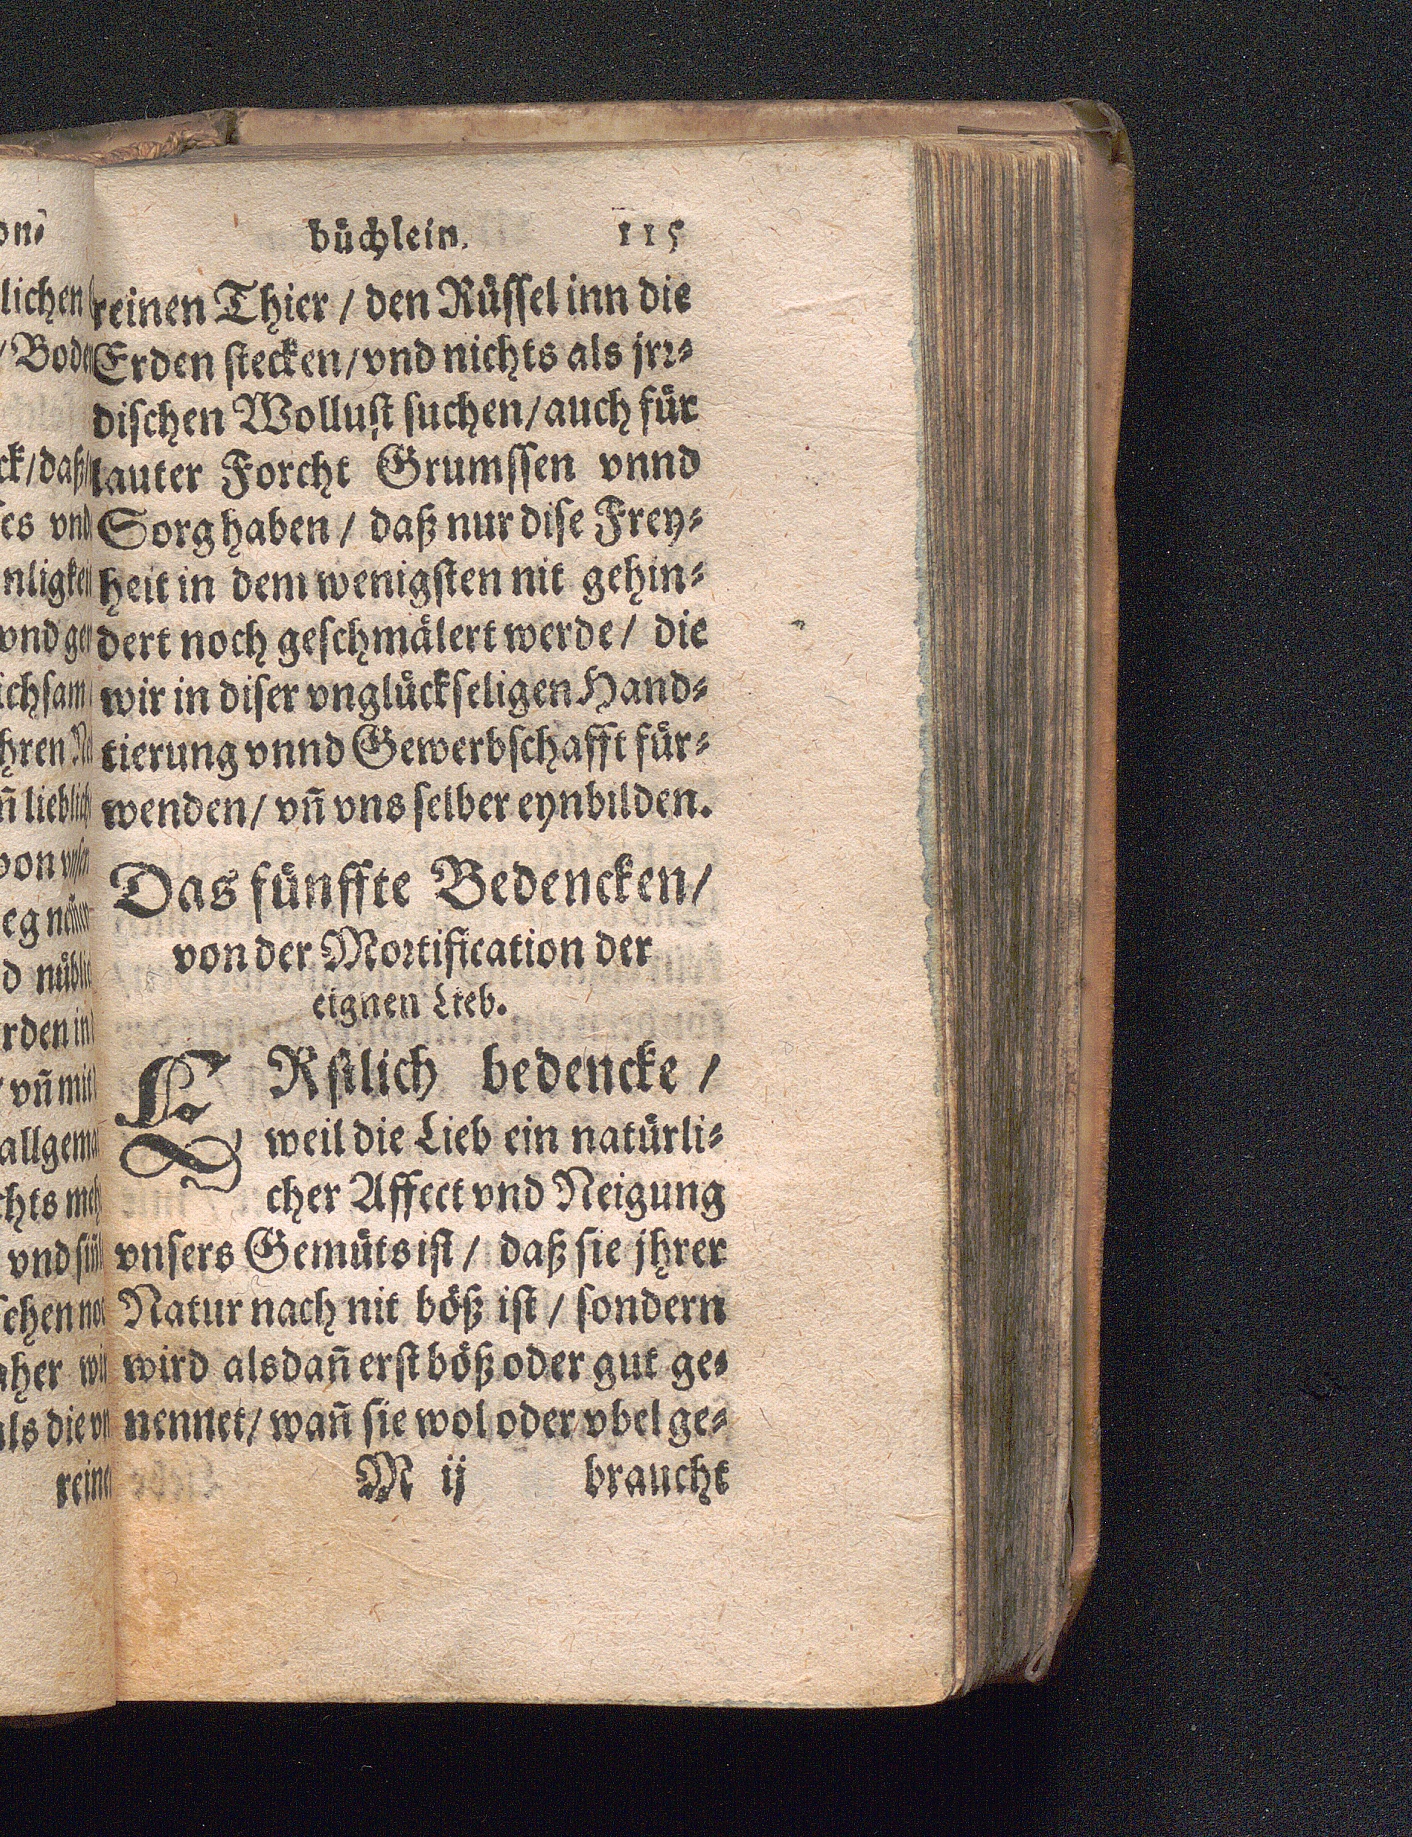 büchlein. 115
reinen Thier / den Rüssel inn die
Erden stecken / vnd nichts als jrr-
dischen Wollust suchen / auch für
lauter Forcht Grumssen vnnd
Sorg haben / daß nur dise Frey-
heit in dem wenigsten nit gehin-
dert noch geschmälert werde / die
wir in diser vnglückseligen Hand-
tierung vnnd Gewerbschafft für-
wenden / vñ vns selber eynbilden.
Das fünffte Bedencken /
von der Mortification der
eignen Lieb.
ERstlich bedencke /
weil die Lieb ein natürli-
cher Affect vnd Neigung
vnsers Gemüts ist / daß sie jhrer
Natur nach nit böß ist / sondern
wird alsdañ erst böß oder gut ge-
nennet / wañ sie wol oder vbel ge-
M ij braucht